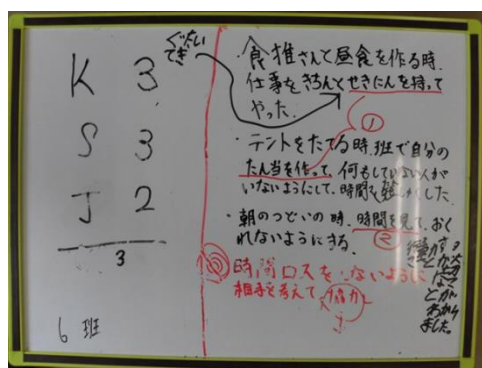 K 3
S 3
J 2
3
6 班
ぐたい
てき
・食推さんと昼食を作る時、
仕事をきちんとせきたんを持って
やった。
①
・テントをたてる時、班で自分の
たん当を作って、何もしていない人が
いないようにして、時間を
した。
・朝のつどいの時、時間を見て、おく
れないようにする。
②
時間ロスをしないように
相手を考えて 協力
大切
なこ
とが
わかり
ました。